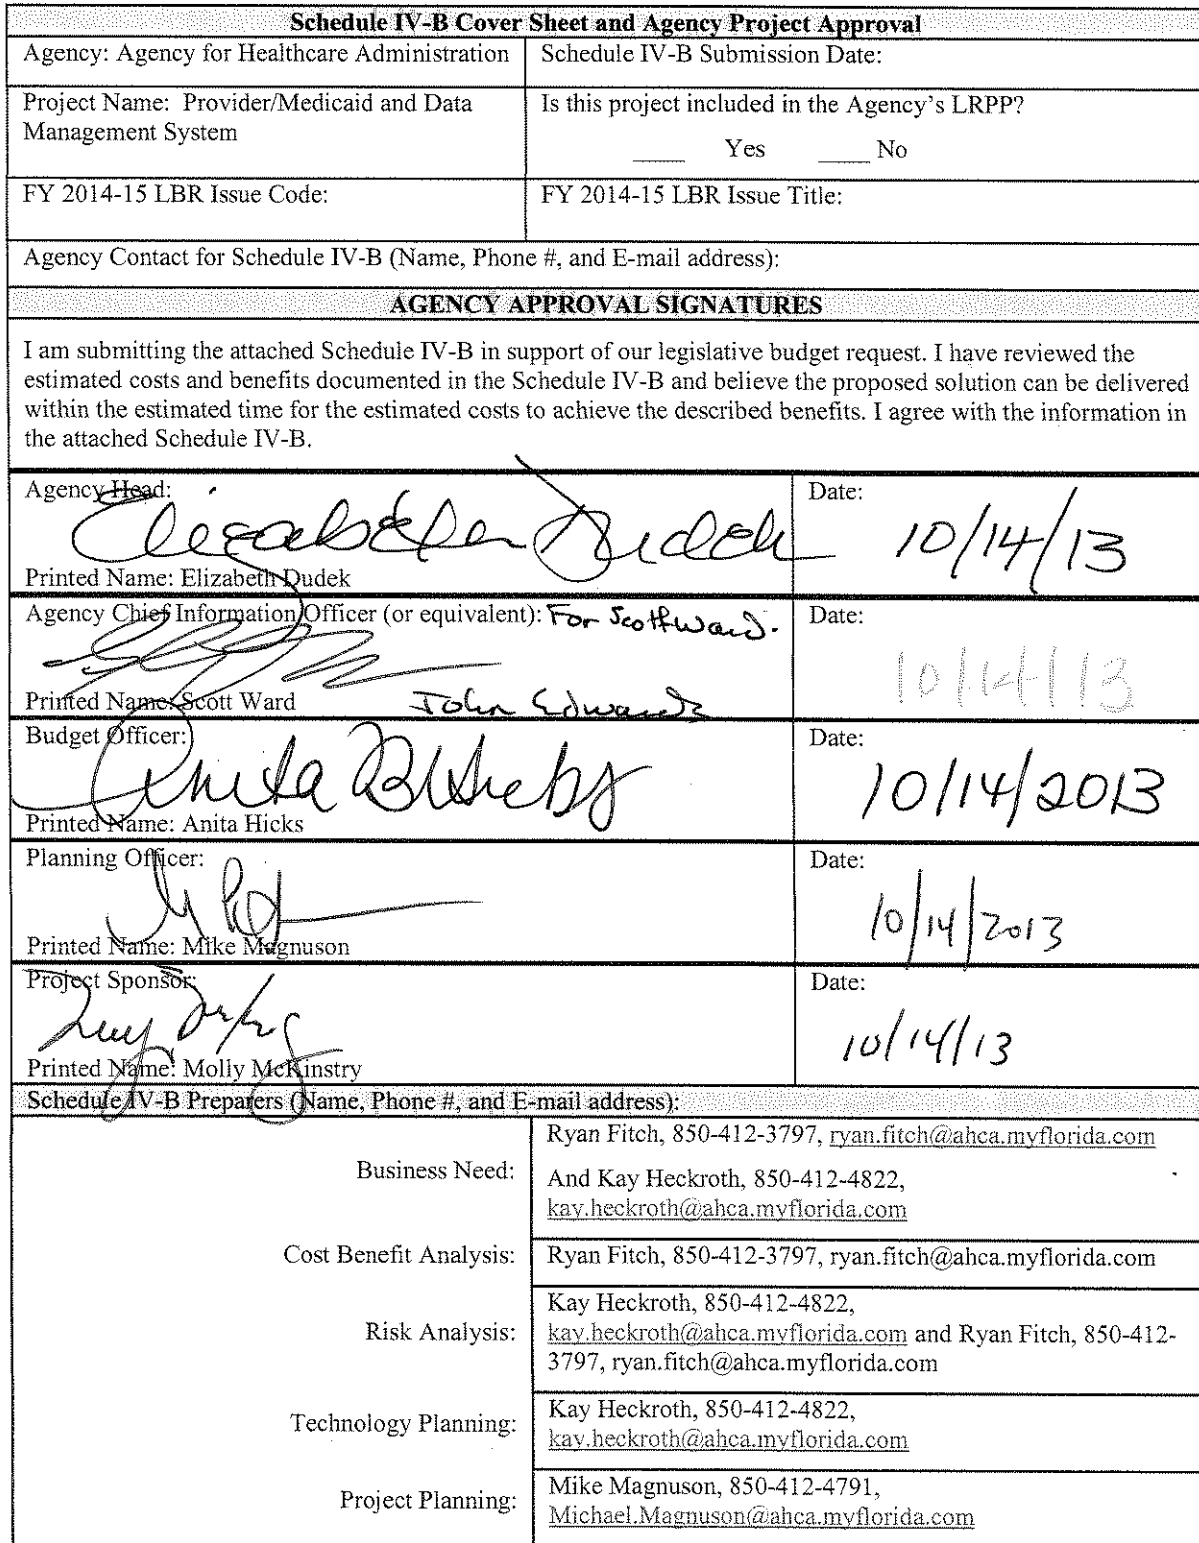 Schedule IV-B Cover Sheet and Agency Project Approval
Agency: Agency for Healthcare Administration
Schedule IV-B Submission Date:
Project Name: Provider/Medicaid and Data
Management System
Is this project included in the Agency's LRPP?
____ Yes ____ No
FY 2014-15 LBR Issue Code:
FY 2014-15 LBR Issue Title:
Agency Contact for Schedule IV-B (Name, Phone #, and E-mail address):
AGENCY APPROVAL SIGNATURES
I am submitting the attached Schedule IV-B in support of our legislative budget request. I have reviewed the
estimated costs and benefits documented in the Schedule IV-B and believe the proposed solution can be delivered
within the estimated time for the estimated costs to achieve the described benefits. I agree with the information in
the attached Schedule IV-B.
Agency Head:
Elizabeth Dudek
Date:
10/14/13
Printed Name: Elizabeth Dudek
Agency Chief Information Officer (or equivalent): For Scott Ward.
Date:
10/14/13
Printed Name: Scott Ward John Edwards
Budget Officer:
Anita B Hicks
Date:
10/14/2013
Printed Name: Anita Hicks
Planning Officer:
Date:
10/14/2013
Printed Name: Mike Magnuson
Project Sponsor:
Date:
10/14/13
Printed Name: Molly McKinstry
Schedule IV-B Preparers (Name, Phone #, and E-mail address):
Business Need:
Ryan Fitch, 850-412-3797, ryan.fitch@ahca.myflorida.com
And Kay Heckroth, 850-412-4822,
kay.heckroth@ahca.myflorida.com
Cost Benefit Analysis:
Ryan Fitch, 850-412-3797, ryan.fitch@ahca.myflorida.com
Risk Analysis:
Kay Heckroth, 850-412-4822,
kay.heckroth@ahca.myflorida.com and Ryan Fitch, 850-412-
3797, ryan.fitch@ahca.myflorida.com
Technology Planning:
Kay Heckroth, 850-412-4822,
kay.heckroth@ahca.myflorida.com
Project Planning:
Mike Magnuson, 850-412-4791,
Michael.Magnuson@ahca.myflorida.com